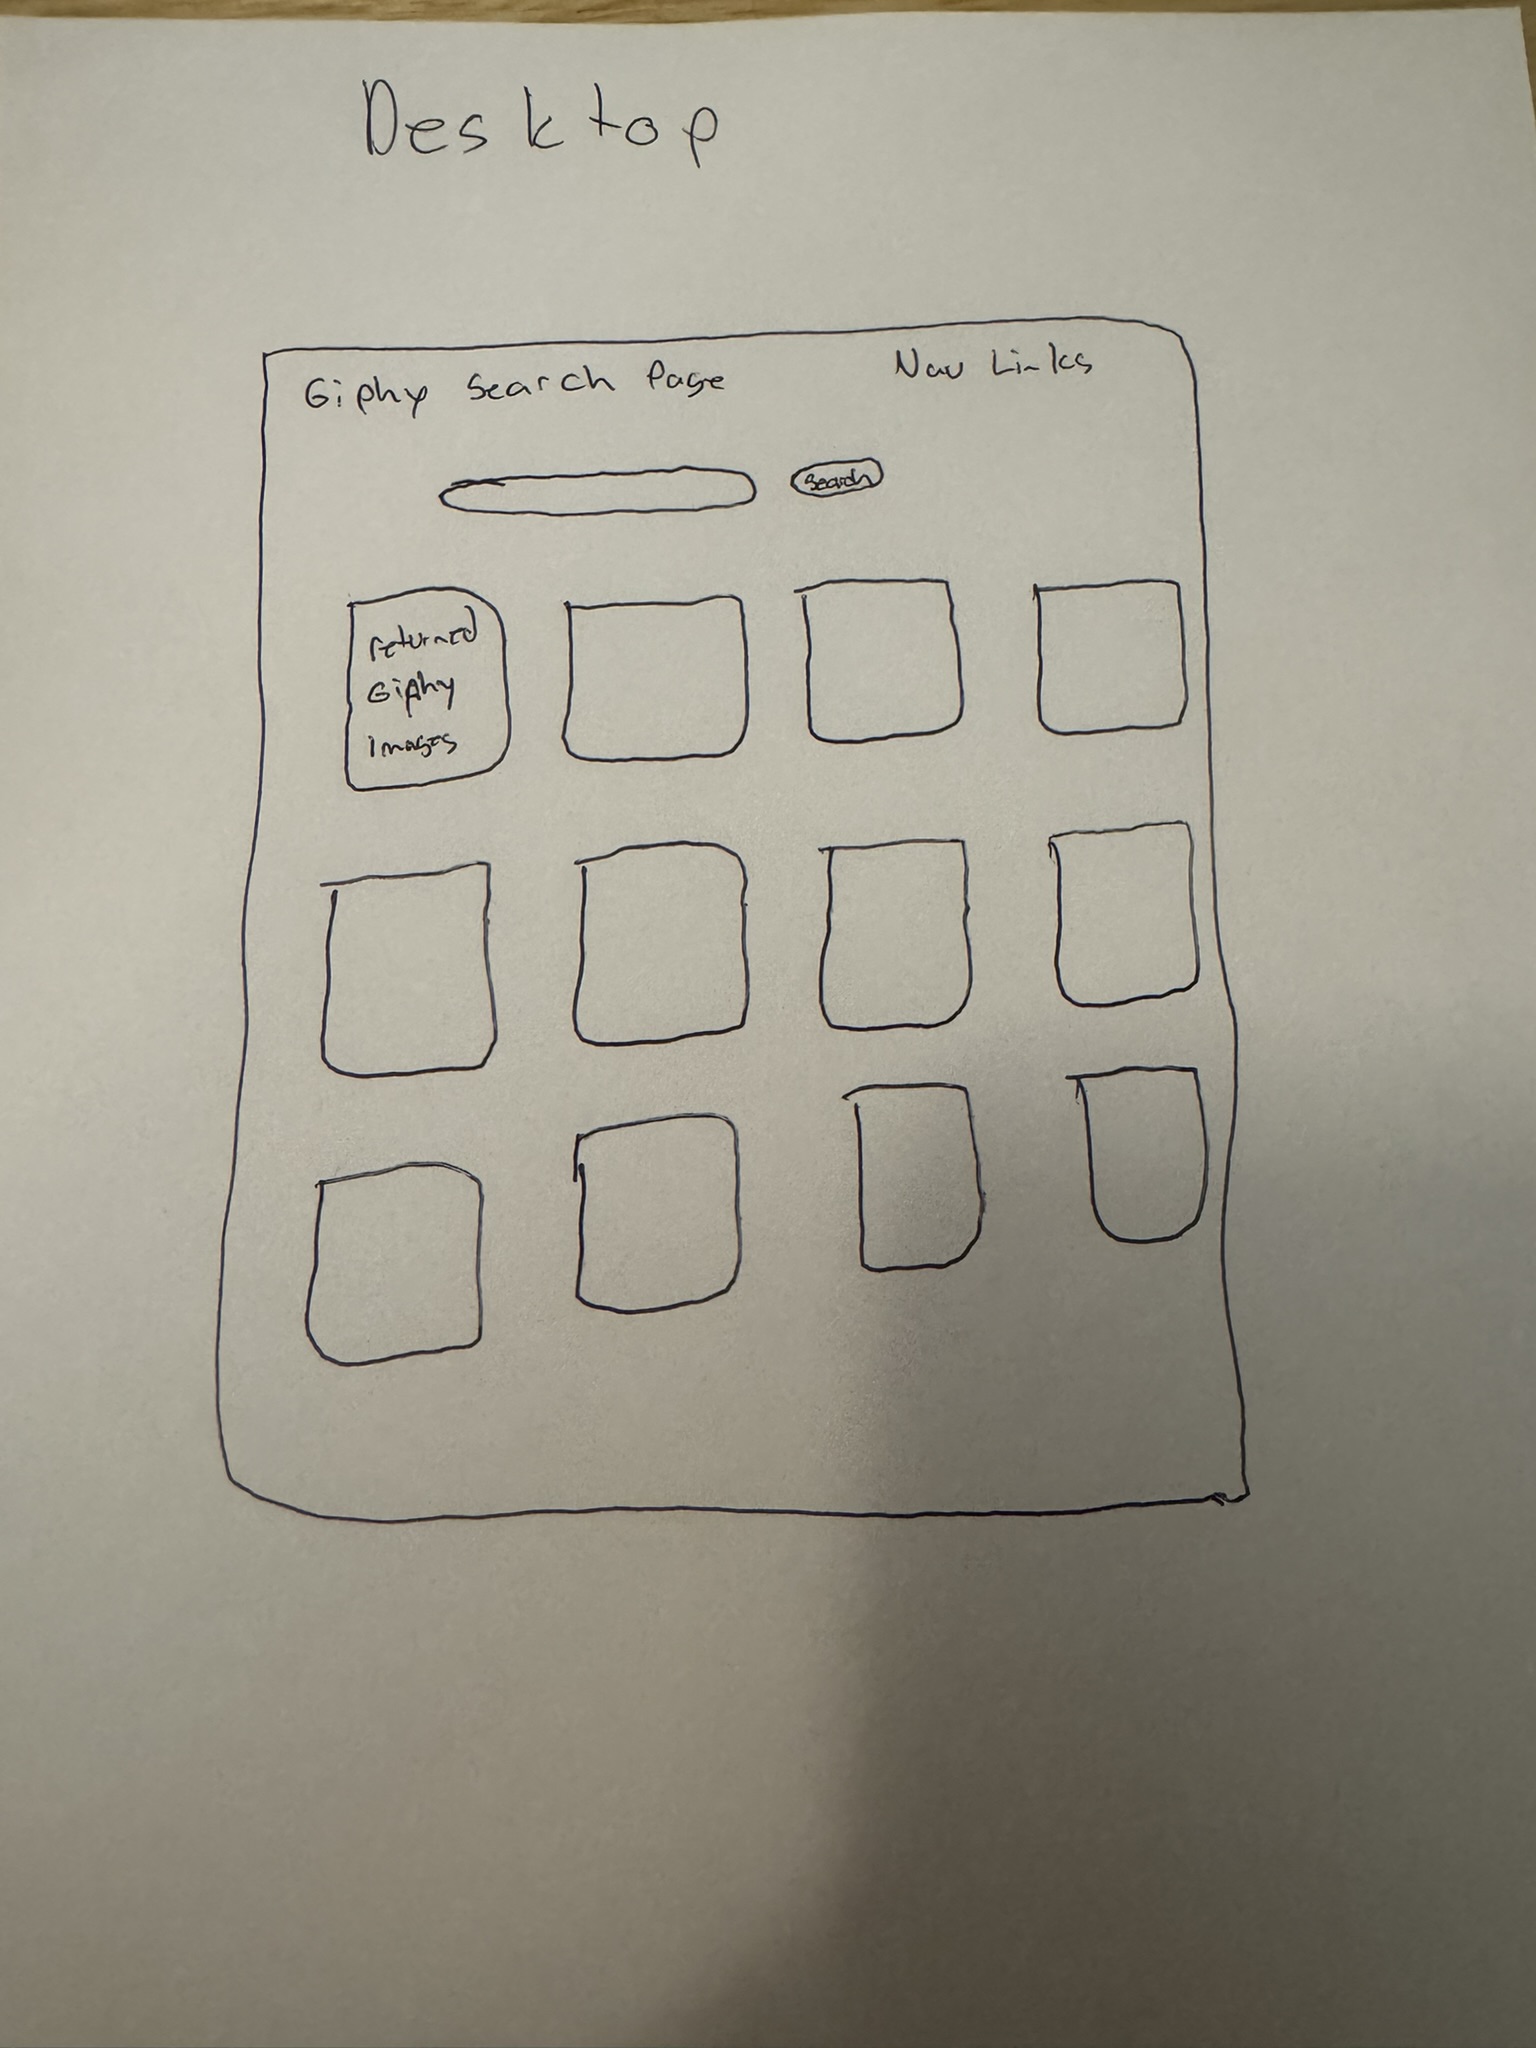 Desktop
Giphy Search Page
Nav Links
Search
returned
Giphy
images